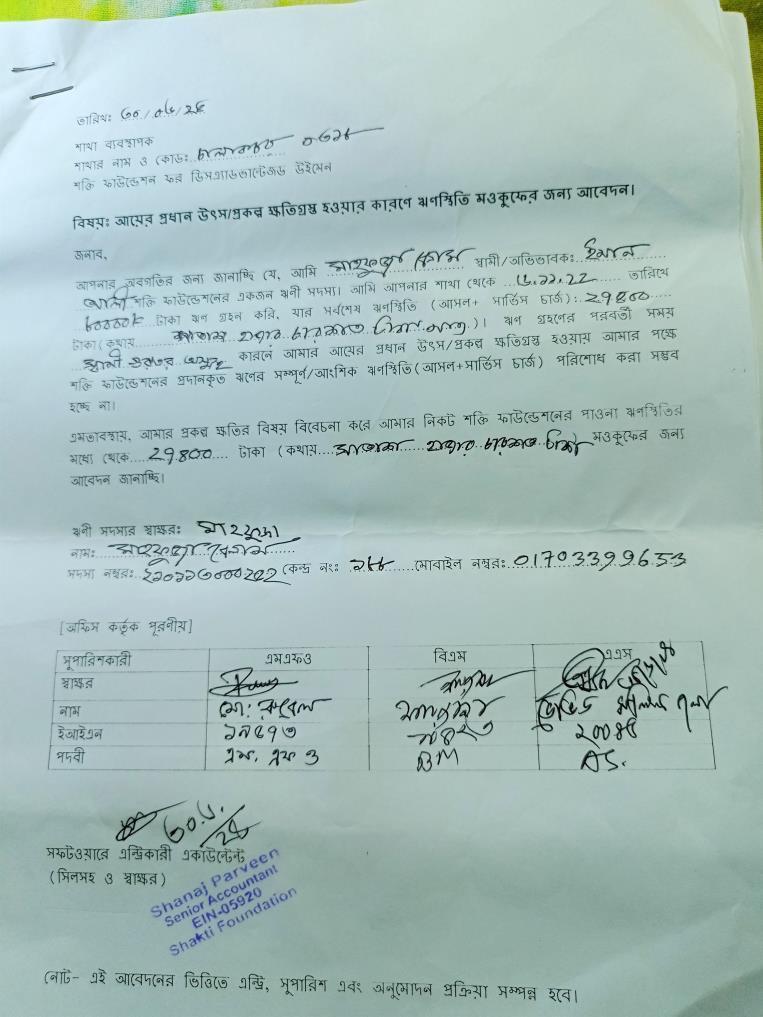 তারিখঃ
শাখা ব্যবস্থাপক
শাখার নাম ও কোডঃ
শক্তি ফাউন্ডেশন ফর ডিসএ্যাডভান্টেজড উইমেন
বিষয়ঃ আয়ের প্রধান উৎস/প্রকল্প ক্ষতিগ্রস্ত হওয়ার কারণে ঋণস্থিতি মওকুফের জন্য আবেদন।
জনাব,
আপনার অবগতির জন্য জানাচ্ছি যে, আমি মাহফুজা বেগম স্বামী/অভিভাবকঃ ইমান
আলী শক্তি ফাউন্ডেশনের একজন ঋনী সদস্য। আমি আপনার শাখা থেকে ৬.১১.22 তারিখে
টাকা ঋন গ্রহন করি, যার সর্বশেষ ঋনস্থিতি (আসল+ সার্ভিস চার্জ): 29800
টাকা(কথায় হাজার টাকা মাত্র)। ঋণ গ্রহণের পরবর্তী সময়
স্বামী গুরুতর অসুস্থ কারনে আমার আয়ের প্রধান উৎস/প্রকল্প ক্ষতিগ্রস্ত হওয়ায় আমার পক্ষে
শক্তি ফাউন্ডেশনের প্রদানকৃত ঋনের সম্পূর্ণ/আংশিক ঋনস্থিতি(আসল+সার্ভিস চার্জ) পরিশোধ করা সম্ভব
হচ্ছে না।
এমতাবস্থায়, আমার প্রকল্প ক্ষতির বিষয় বিবেচনা করে আমার নিকট শক্তি ফাউন্ডেশনের পাওনা ঋনস্থিতির
মধ্যে থেকে 29800 টাকা (কথায় হাজার টাকা মওকুফের জন্য
আবেদন জানাচ্ছি।
ঋনী সদস্যের স্বাক্ষরঃ মাহফুজা
নামঃ মাহফুজা বেগম
সদস্য নম্বরঃ কেন্দ্র নংঃ মোবাইল নম্বরঃ 01703399653
[অফিস কর্তৃক পূরণীয়]
সুপারিশকারী এমএফও বিএম এএস
স্বাক্ষর
নাম মো: রুবেল
ইআইএন
পদবী এম. এফ ও BM AS.
সফটওয়্যারে এন্ট্রিকারী একাউন্টেন্ট
(সিলসহ ও স্বাক্ষর)
Shanaj Parveen
Senior Accountant
EIN-05920
Shakti Foundation
নোট- এই আবেদনের ভিত্তিতে এন্ট্রি, সুপারিশ এবং অনুমোদন প্রক্রিয়া সম্পন্ন হবে।